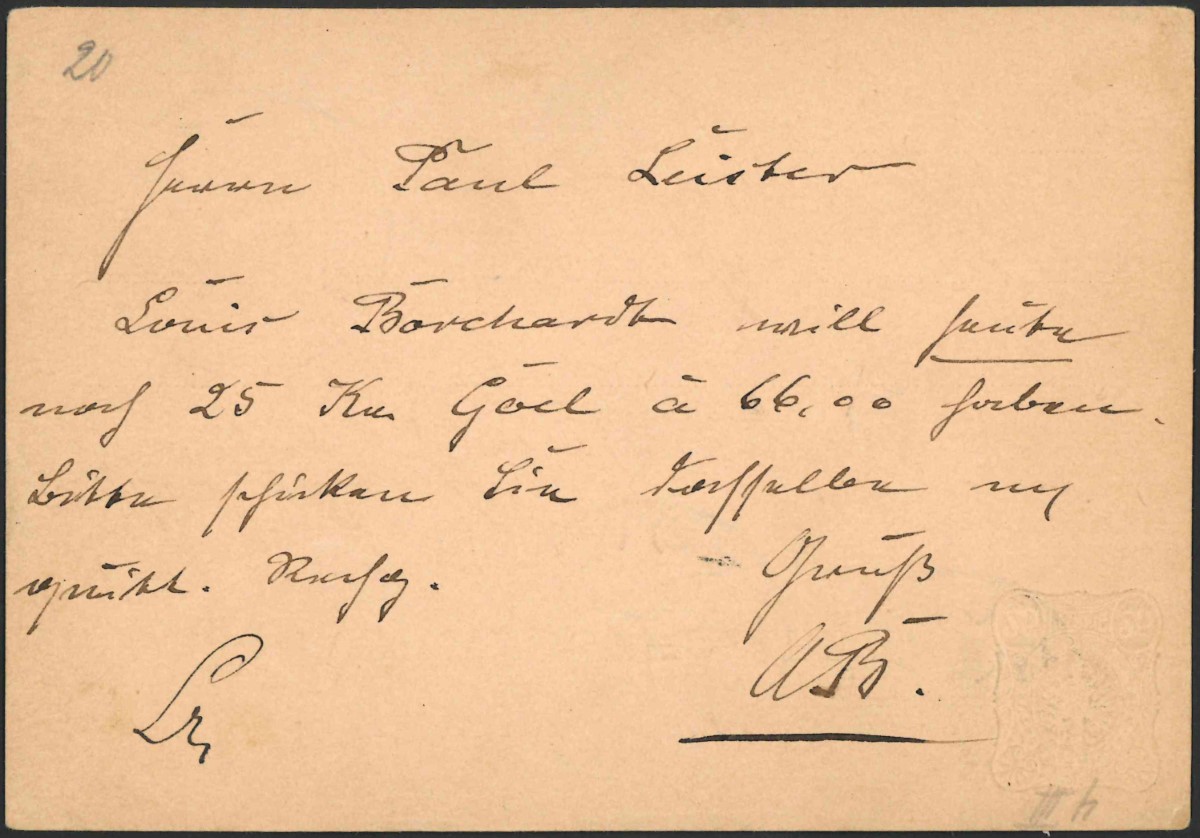 20
Herrn Paul Leister
Louis Borchardt will heute
noch 25 Goel à 66,00 haben.
Bitte schicken Sie dasselbe
quitt. Rechg.
Gruß
AB.